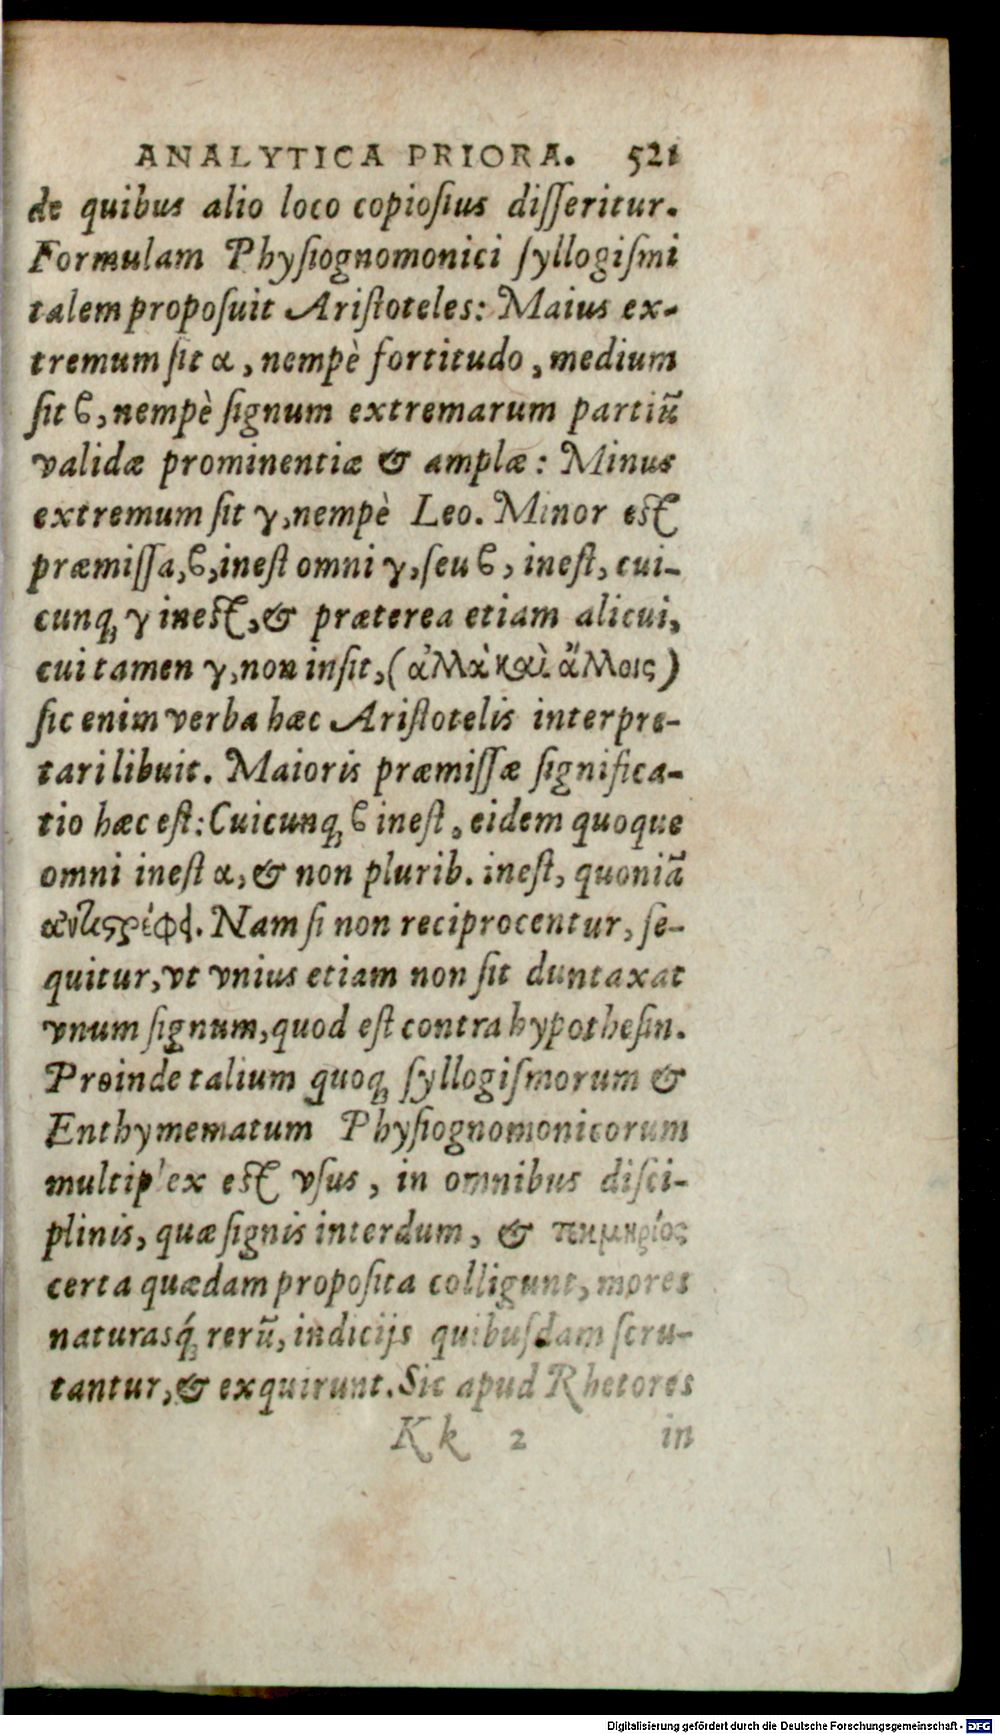 ANALYTICA PRIORA. 521
de quibus alio loco copiosius disseritur.
Formulam Physiognomonici syllogismi
talem proposuit Aristoteles: Maius ex-
tremum sit α, nempè fortitudo, medium
sit ϐ, nempè signum extremarum partiũ
validæ prominentiæ & amplæ: Minus
extremum sit γ, nempè Leo. Minor est
præmissa, ϐ, inest omni γ, seu ϐ, inest, cui-
cunq; γ inest, & præterea etiam alicui,
cui tamen γ, non insit, (ἀλλὰ καὶ ἄλλοις)
sic enim verba hæc Aristotelis interpre-
tari libuit. Maioris præmissæ significa-
tio hæc est: Cuicunq; ϐ inest, eidem quoque
omni inest α, & non plurib. inest, quoniã
ἀντιστρέφει. Nam si non reciprocentur, se-
quitur, vt vnius etiam non sit duntaxat
vnum signum, quod est contra hypothesin.
Proinde talium quoq; syllogismorum &
Enthymematum Physiognomonicorum
multiplex est vsus, in omnibus disci-
plinis, quæ signis interdum, & τεκμηρίοις
certa quædam proposita colligunt, mores
naturasq́; rerũ, indicijs quibusdam scru-
tantur, & exquirunt. Sic apud Rhetores
Kk 2 in
Digitalisierung gefördert durch die Deutsche Forschungsgemeinschaft - DFG